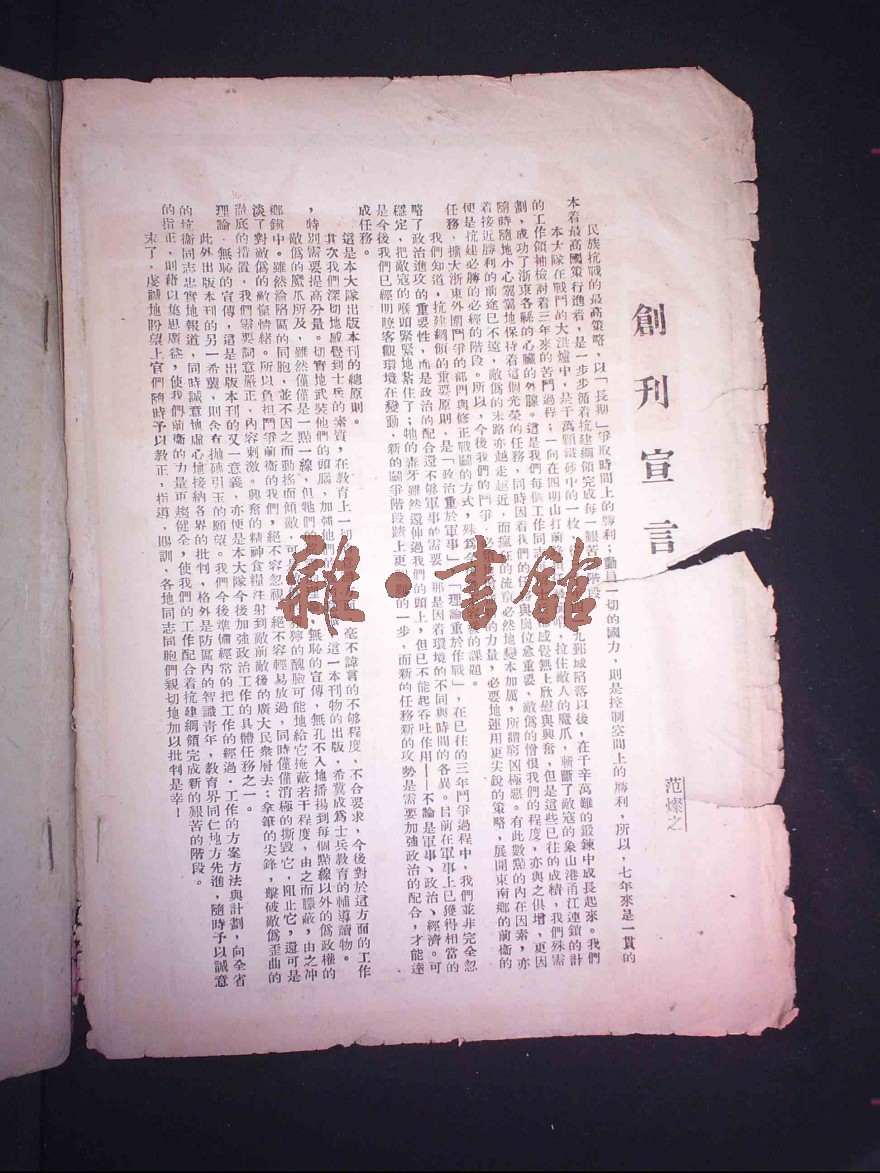 創刊宣言
范燦之
民族抗戰的最高策略，以「長期」爭取時間上的勝利；動員一切的國力，則是控制空間上的勝利，所以，七年來是一貫的
本着最高國策行進着，是一步步循着抗建綱領完成每一艱苦的階段。
本大隊在戰鬥的大洪爐中，是千萬顆鐵砂中的一枚，九鄞城陷落以後，在千辛萬難的鍛鍊中成長起來。我們
的工作領袖檢討着三年來的苦鬥過程；一向在四明山打前，拉住敵人的魔爪，斬斷了敵寇的象山港甬江連鎖的計
劃，成功了浙東各縣的心臟的外腺。這是我們每個工作同志感覺無上欣慰與興奮，但是這些已往的成績，我們殊需
隨時隨地小心翼翼地保持着這個光榮的任務，同時因着我們的與崗位愈重要，敵偽的憎恨我們的程度，亦與之俱增，更因
着接近勝利的前途已不遠，敵偽的末路亦越走越近，而瘋狂的流竄必然地變本加厲，所謂窮凶極惡。有此數點的內在因素，亦
便是抗建必勝的必經的階段。所以，今後我們的鬥爭的力量，必要地運用更尖銳的策略，展開東南鄉的前衛的
任務，擴大浙東外圍鬥爭的部門與修正戰鬪的方式，殊為的課題。
我們知道，抗建綱領的重要原則，是「政治重於軍事」「理論重於作戰」，在已往的三年鬥爭過程中，我們並非完全忽
略了政治進攻的重要性，而是政治的配合還不够軍事的需要，那是因着環境的不同與時間的各異。目前在軍事上已獲得相當的
穩定，把敵寇的喉頭緊緊地紮住了；牠的毒牙雖然還伸過我們的頭上，但已不能起吞吐作用——不論是軍事、政治、經濟。可
是今後我們已經明瞭客觀環境在變動，新的鬪爭階段踏上更的一步，而新的任務新的攻勢是需要加強政治的配合，才能達
成任務。
這是本大隊出版本刊的總原則。
其次我們深切地感覺到士兵的素質，在教育上一切毫不諱言的不够程度，不合要求，今後對於這方面的工作
，特別需要提高分量。切實地武裝他們的頭腦，加強他們這一本刊物的出版，希冀成為士兵教育的輔導讀物。
敵偽的魔爪所及，雖然僅僅是一點一線，但牠們的，無恥的宣傳，無孔不入地播揚到每個點線以外的偽政權的
鄉鎮中。雖然淪陷區的同胞，並不因之而動搖而傾敵，可是獰的醜臉可能地給它掩蔽若干程度，由之而朦蔽，由之沖
淡了對敵偽的敵愾情緒。所以負担鬥爭前衛的我們，絕不容忽視絕不容輕易放過，同時僅僅消極的撕毀它，阻止它，還可是
澈底的措置，我們需要詞意嚴正，內容刺激。興奮的精神食糧注射到敵前敵後的廣大民衆層去；拿筆的尖鋒，擊破敵偽歪曲的
理論，無恥的宣傳，這是出版本刊的又一意義，亦便是本大隊今後加強政治工作的具體任務之一。
此外出版本刊的另一希冀，則含有拋磚引玉的願望。我們今後準備經常的把工作的經過，工作的方案方法與計劃，向全省
的抗衛同志忠實地報道，同時誠意地虛心地接納各界的批判，格外是防區內的智識青年，教育界同仁地方先進，隨時予以誠意
的指正，則藉以集思廣益，使我們前衛的力量更趨健全，使我們的工作配合着抗建綱領完成新的艱苦的階段。
末了，虔誠地盼望上官們隨時予以教正，指導，賜訓，各地同志同胞們親切地加以批判是幸！
雜·書館